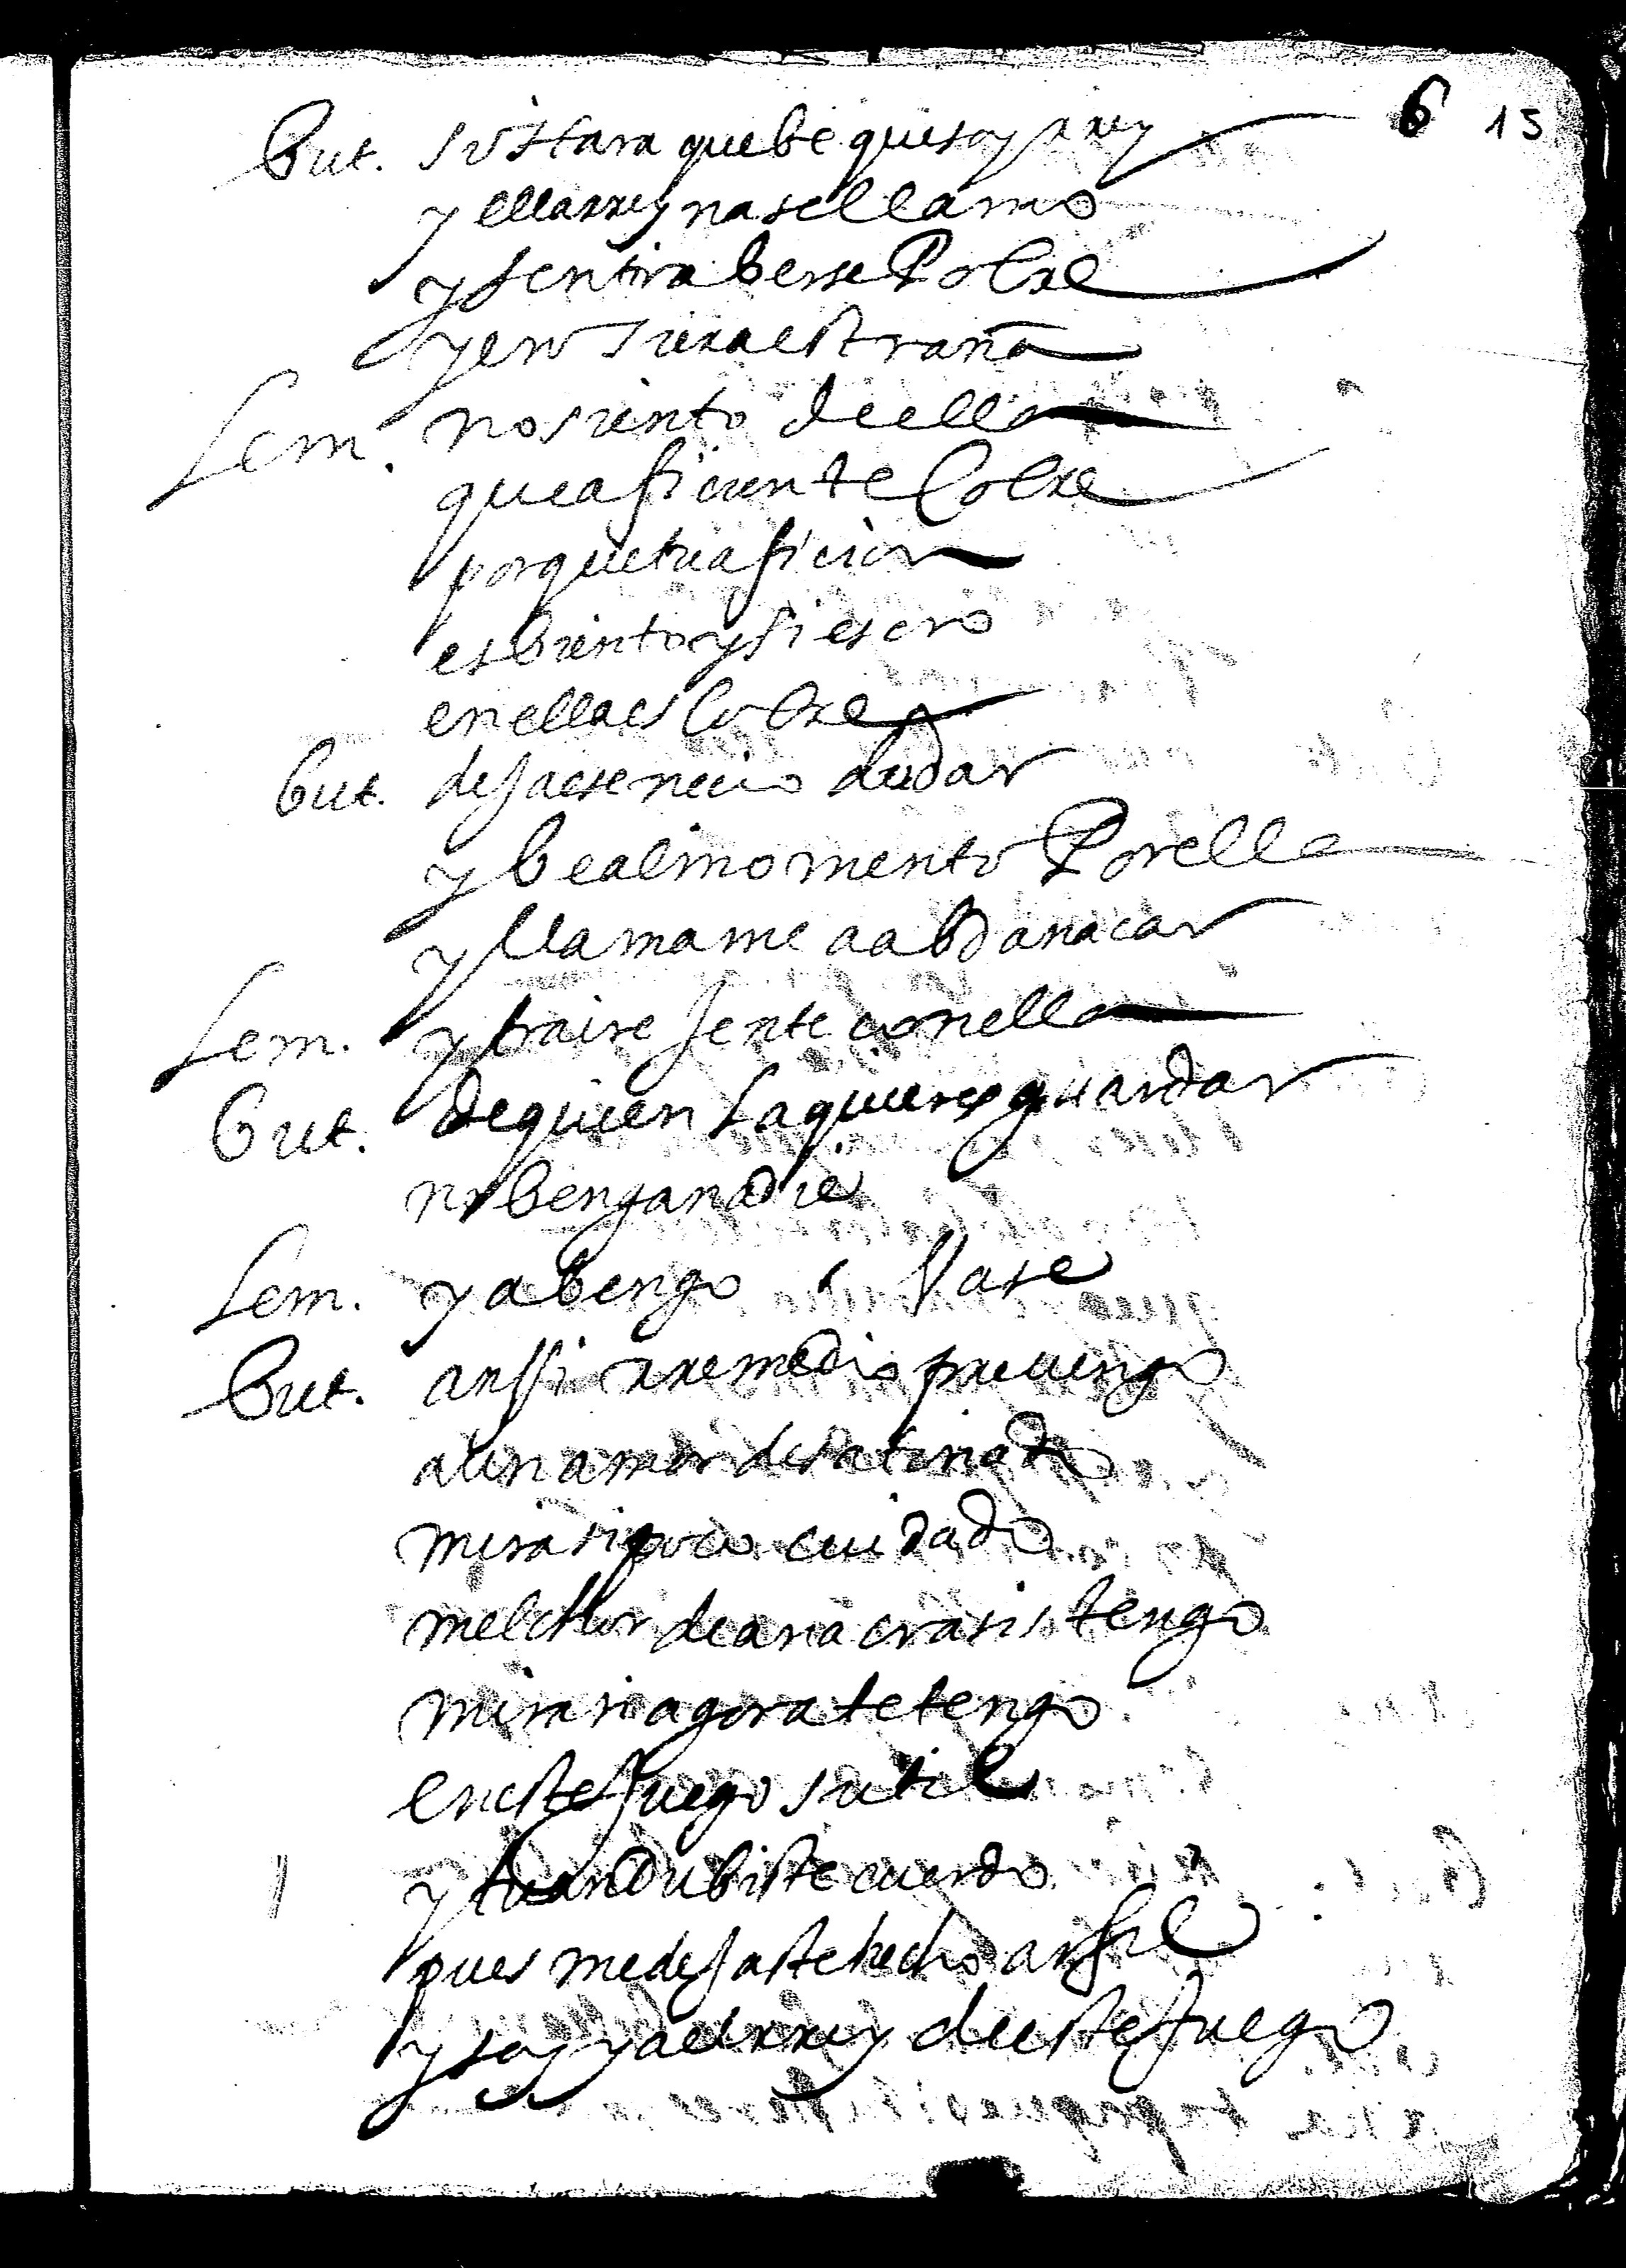 6 15
But. sostara que be que soy rrey
y ella rreyna se llamo
y sentira berse Pobre
y en tierra estraña
Lem. no siento de ella
que a fi ciente Cobre
porque tu aficion
es biento y si es oro
en ella es Cobre
But. deja ese necio dudar
y be al momento Por ella
y llamame a abdanacar
Lem. y traire jente con ella
But. de quien la quieres guardar
no benga nadie
Lem. ya bengo Vase
But. anssi rremedio prevengo
a un amor desatinado
mira si poco cuidado
melchor de ana crasis tengo
mira si agora te tengo
en este juego sutil
y tu andubiste cuerdo
pues me dejaste hecho arfil
y soy ya el rrey de este juego